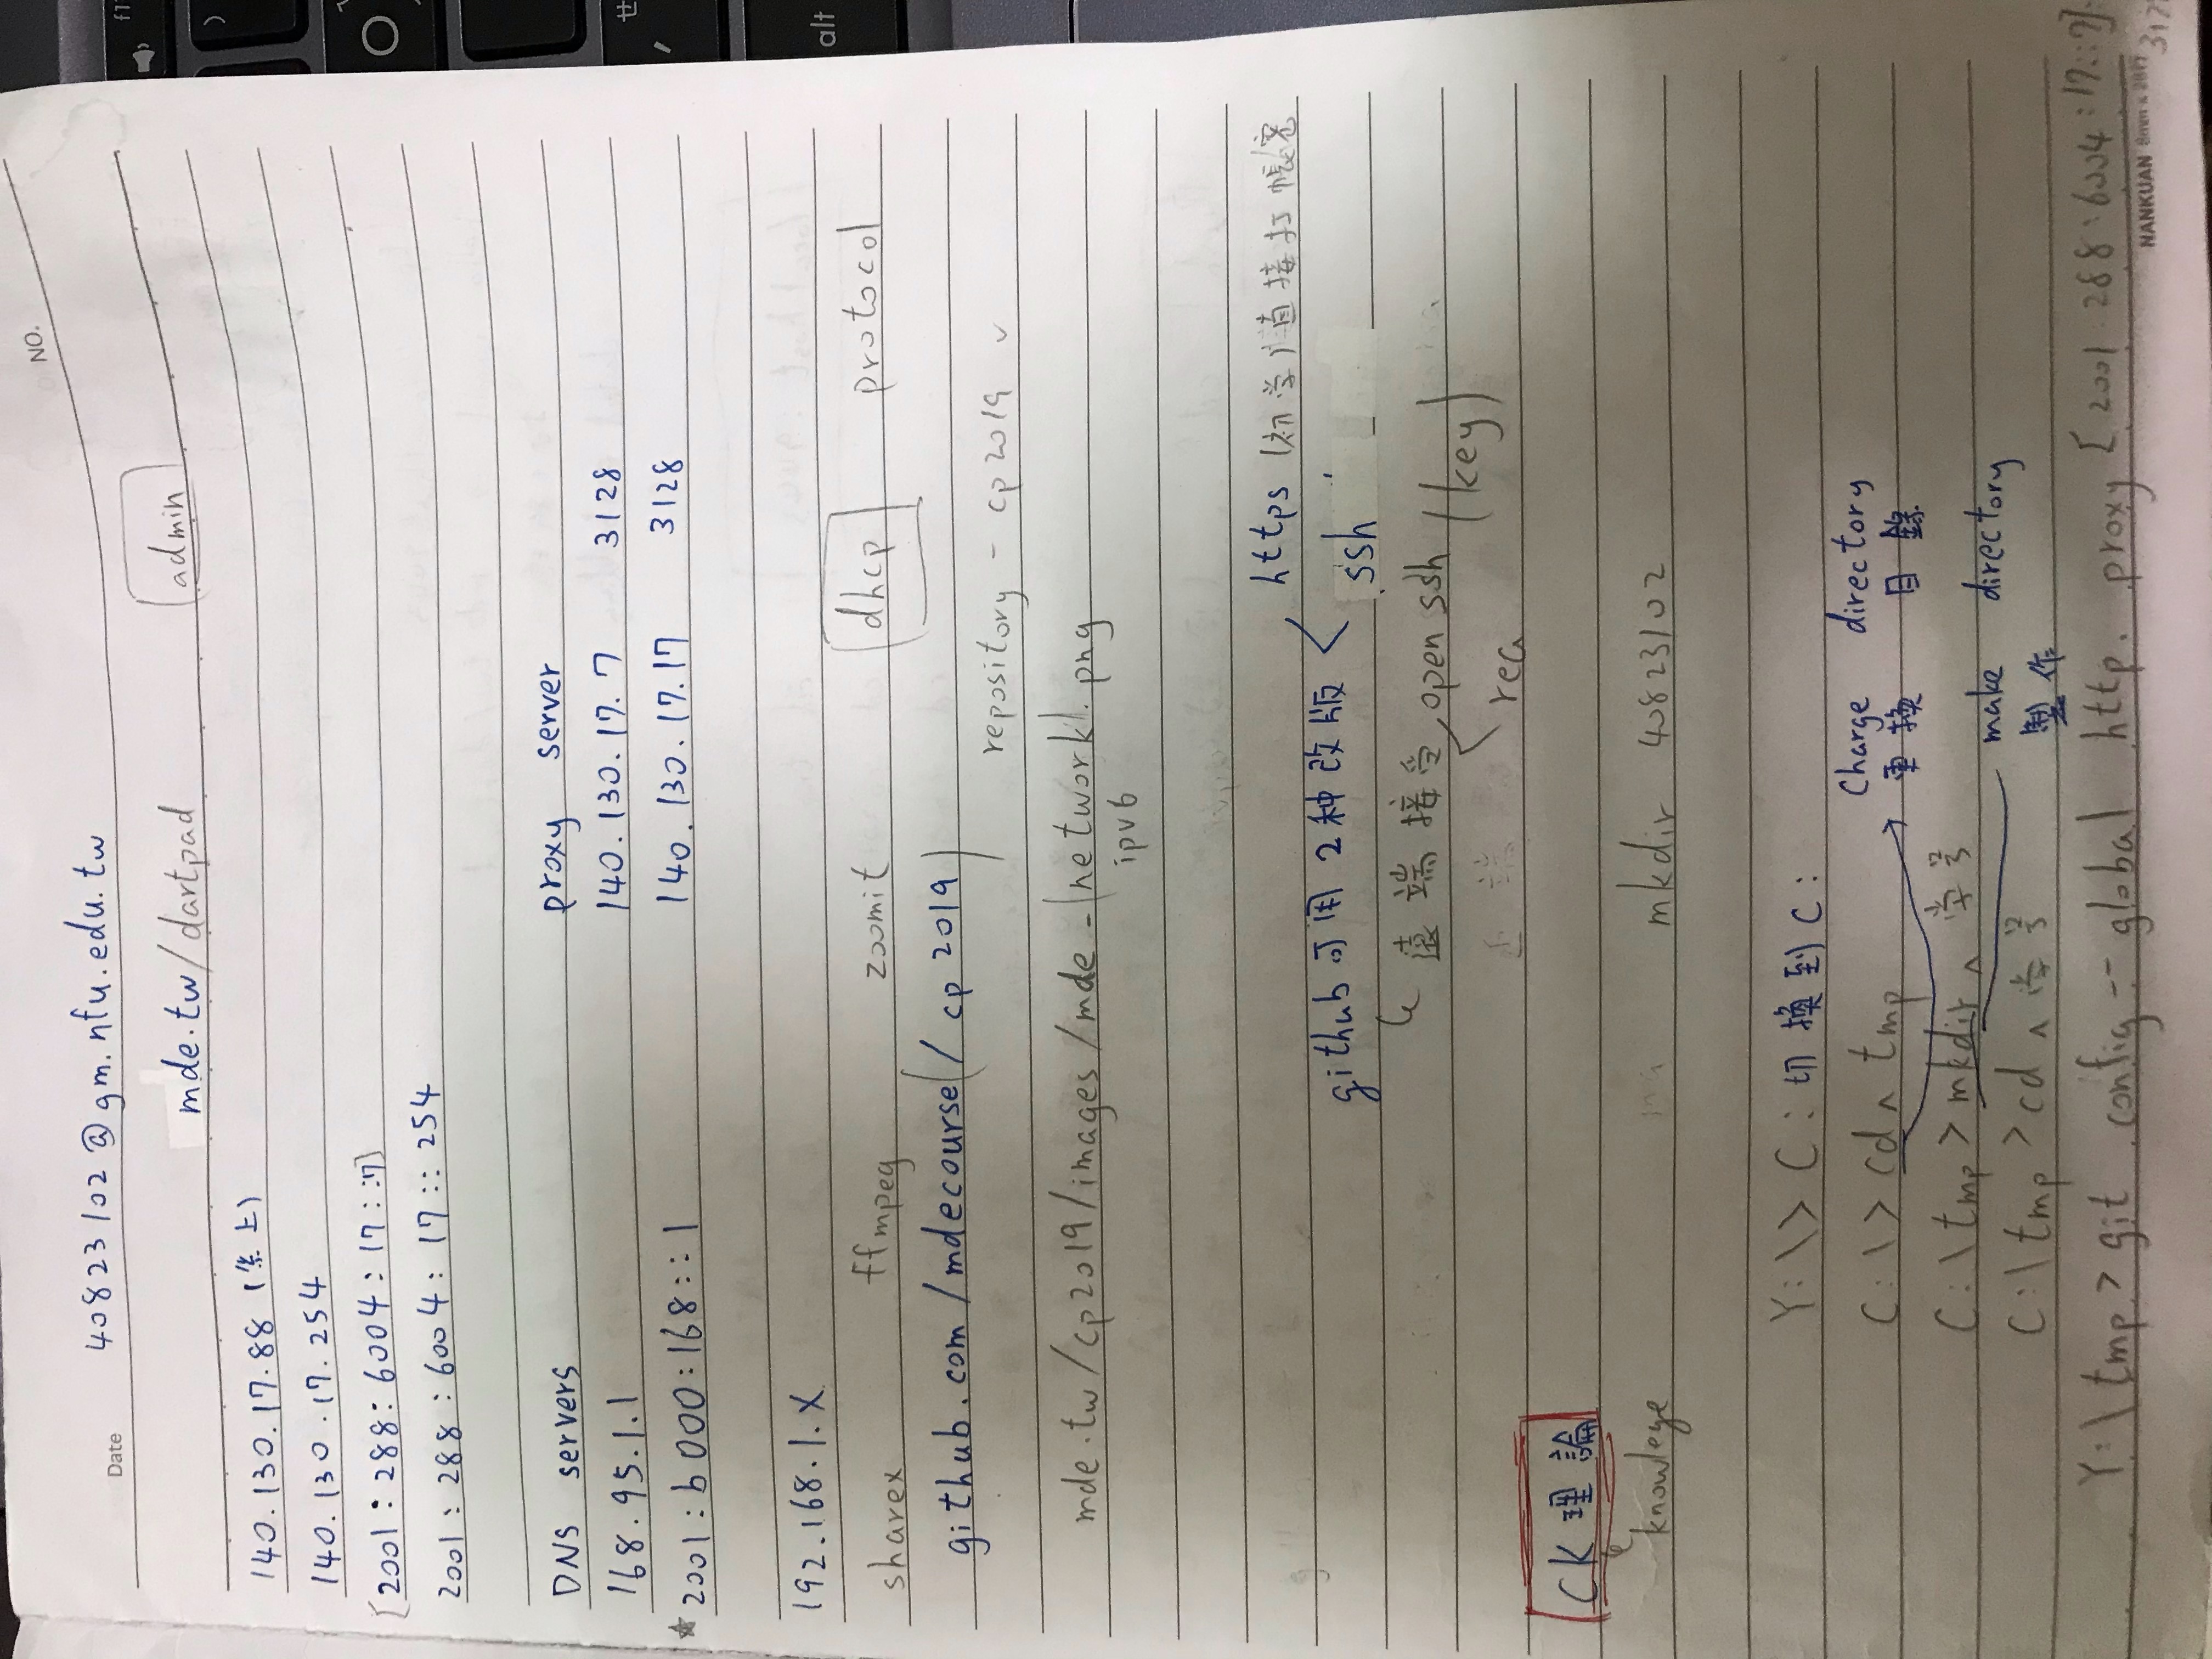 NO.
Date 40823102@gm.nfu.edu.tw
mde.tw/dartpad admin
140.130.17.88 (桌上)
140.130.17.254
[2001:288:6004:17::7]
2001:288:6004:17::254
DNS servers proxy server
168.95.1.1 140.130.17.7 3128
★2001:b000:168::1 140.130.17.17 3128
192.168.1.X
sharex ffmpeg zoomit dhcp protocol
github.com/mdecourse(/cp2019)
repository - cp2019 ✓
mde.tw/cp2019/images/mde-(network).png
ipv6
https (初学)直接打帳密
github 可用2种改版 <
ssh
遠端接受 open ssh (key)
rea
CK理論
knowlege mkdir 40823102
Y:\> C: 切換到C:
C:\> cd ʌ tmp Charge directory
更換 目錄
C:\tmp> mkdir ʌ 学号
make directory
C:\tmp>cd ʌ 学号 製作
Y:\tmp> git config --global http. proxy [2001:288:6004:17::7]:
NANKUAN
312
f11
alt
せ